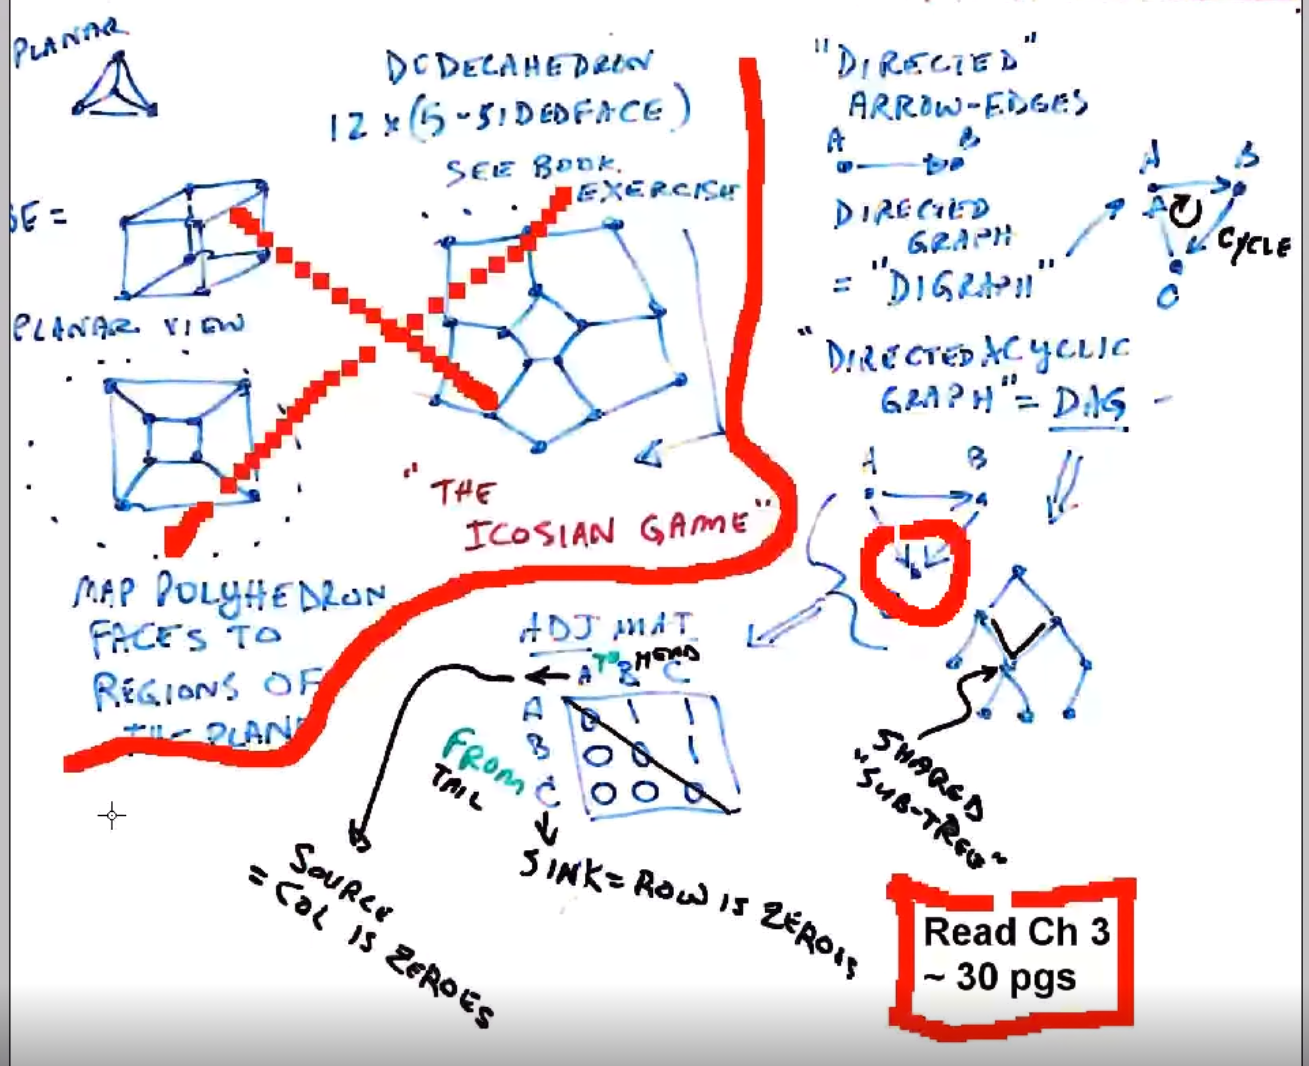 PLANAR
DODECAHEDRON
12 x (5-SIDED FACE)
SEE BOOK.
EXERCISE
BE =
PLANAR VIEW
"THE
ICOSIAN GAME"
MAP POLYHEDRON
FACES TO
REGIONS OF
THE PLANE
"DIRECTED"
ARROW-EDGES
A B
DIRECTED
GRAPH
= "DIGRAPH"
A B
A
CYCLE
C
"DIRECTED ACYCLIC
GRAPH" = DAG
A B
ADJ MAT
TO HEAD
A B C
A 0 1 1
B 0 0 1
C 0 0 0
FROM
TAIL
SINK = ROW IS ZEROES
SOURCE
= COL IS ZEROES
SHARED
"SUB-TREE"
Read Ch 3
~ 30 pgs